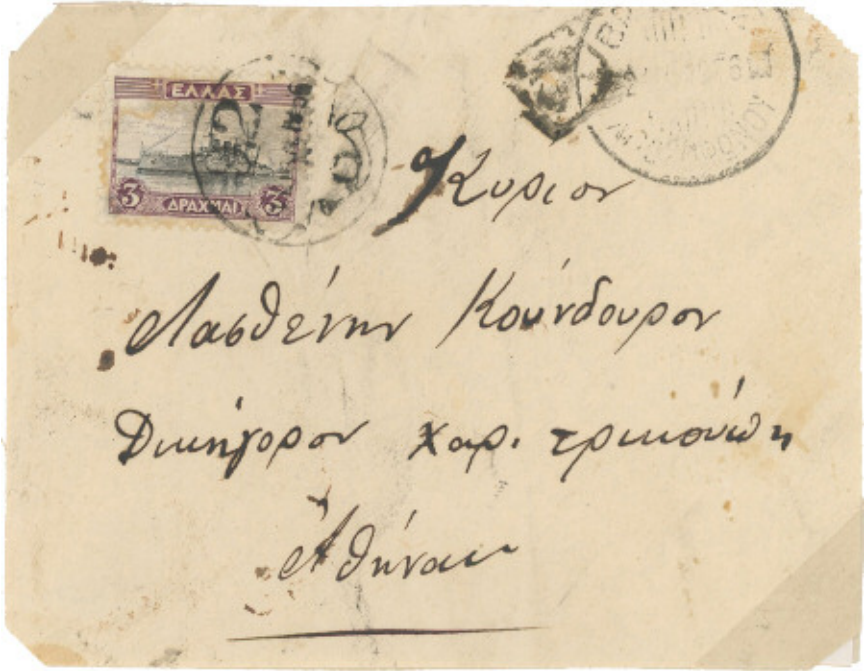 ΕΛΛΑΣ
3 ΔΡΑΧΜΑΙ 3
Κύριον
Λασθένην Κούνδουρον
Δικηγόρον χαρ. τρικούπη
Ἀθήνας